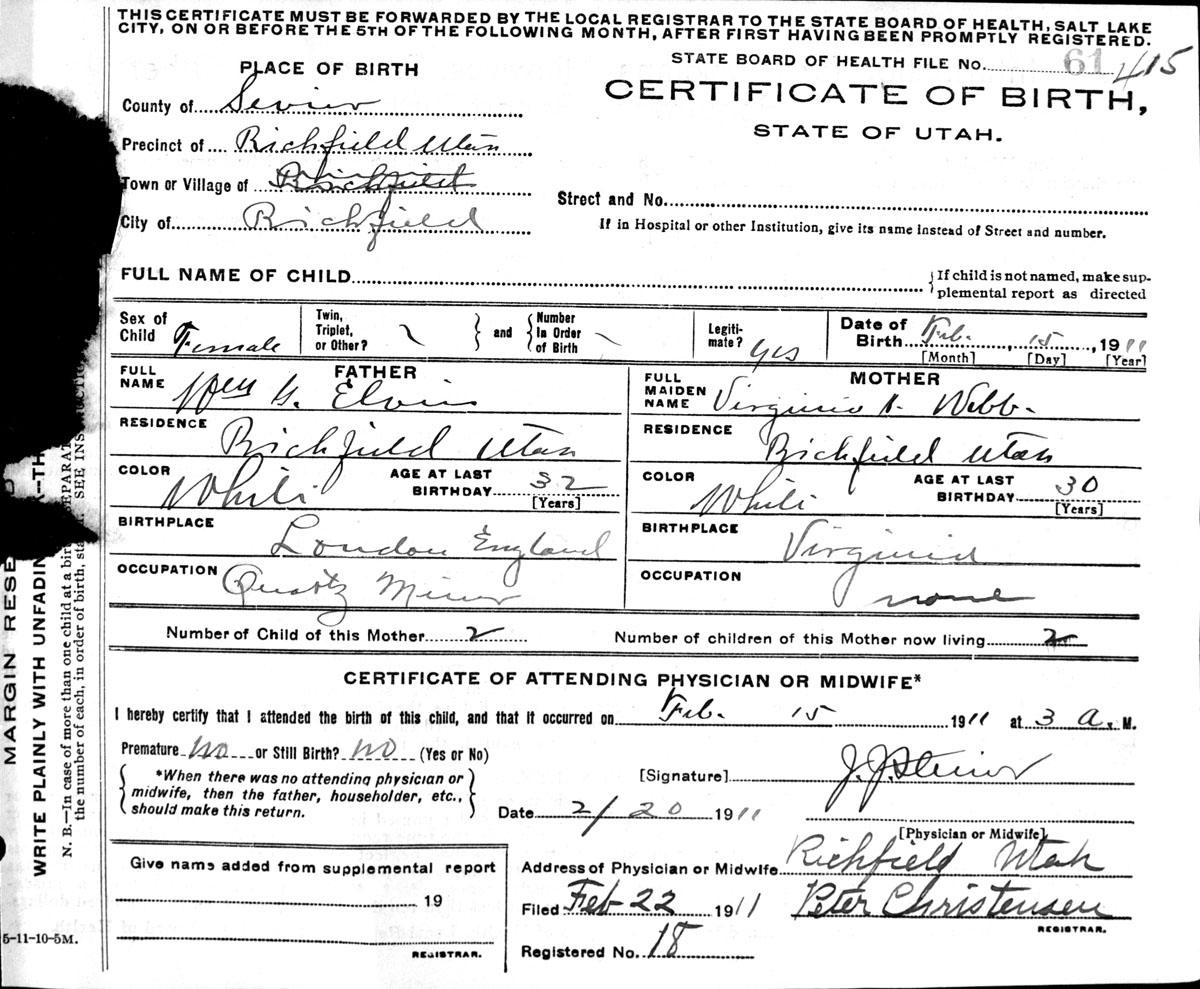 THIS CERTIFICATE MUST BE FORWARDED BY THE LOCAL REGISTRAR TO THE STATE BOARD OF HEALTH, SALT LAKE
CITY, ON OR BEFORE THE 5TH OF THE FOLLOWING MONTH, AFTER FIRST HAVING BEEN PROMPTLY REGISTERED.
STATE BOARD OF HEALTH FILE No. 61 415
PLACE OF BIRTH
CERTIFICATE OF BIRTH,
STATE OF UTAH.
County of Sevier
Precinct of Richfield Utah
Town or Village of Richfield
City of Richfield
Street and No.
If in Hospital or other Institution, give its name instead of Street and number.
FULL NAME OF CHILD
If child is not named, make sup-
plemental report as directed
Sex of Child Female
Twin, Triplet, or Other?
and
Number in Order of Birth
Legiti-mate? Yes
Date of Birth Feb. 15, 1911
[Month] [Day] [Year]
FATHER
FULL NAME Wm G. Elvin
RESIDENCE Richfield Utah
COLOR White AGE AT LAST BIRTHDAY 32
[Years]
BIRTHPLACE London England
OCCUPATION Quartz Miner
MOTHER
FULL MAIDEN NAME Virginia A. Webb.
RESIDENCE Richfield Utah
COLOR White AGE AT LAST BIRTHDAY 30
[Years]
BIRTHPLACE Virginia
OCCUPATION none
Number of Child of this Mother 2 Number of children of this Mother now living 2
CERTIFICATE OF ATTENDING PHYSICIAN OR MIDWIFE*
I hereby certify that I attended the birth of this child, and that it occurred on Feb. 15 1911 at 3 a. M.
Premature No or Still Birth? No (Yes or No)
*When there was no attending physician or
midwife, then the father, householder, etc.,
should make this return.
[Signature] J. J. Steiner
Date 2/20 1911
[Physician or Midwife]
Address of Physician or Midwife Richfield Utah
Filed Feb 22 1911 Peter Christensen
REGISTRAR.
Registered No. 18
Give name added from supplemental report
19
REGISTRAR.
5-11-10-5M.
MARGIN RESE
WRITE PLAINLY WITH UNFADIN K—TH
N. B.—In case of more than one child at a bir EPARAT
the number of each, in order of birth, sta SEE INS